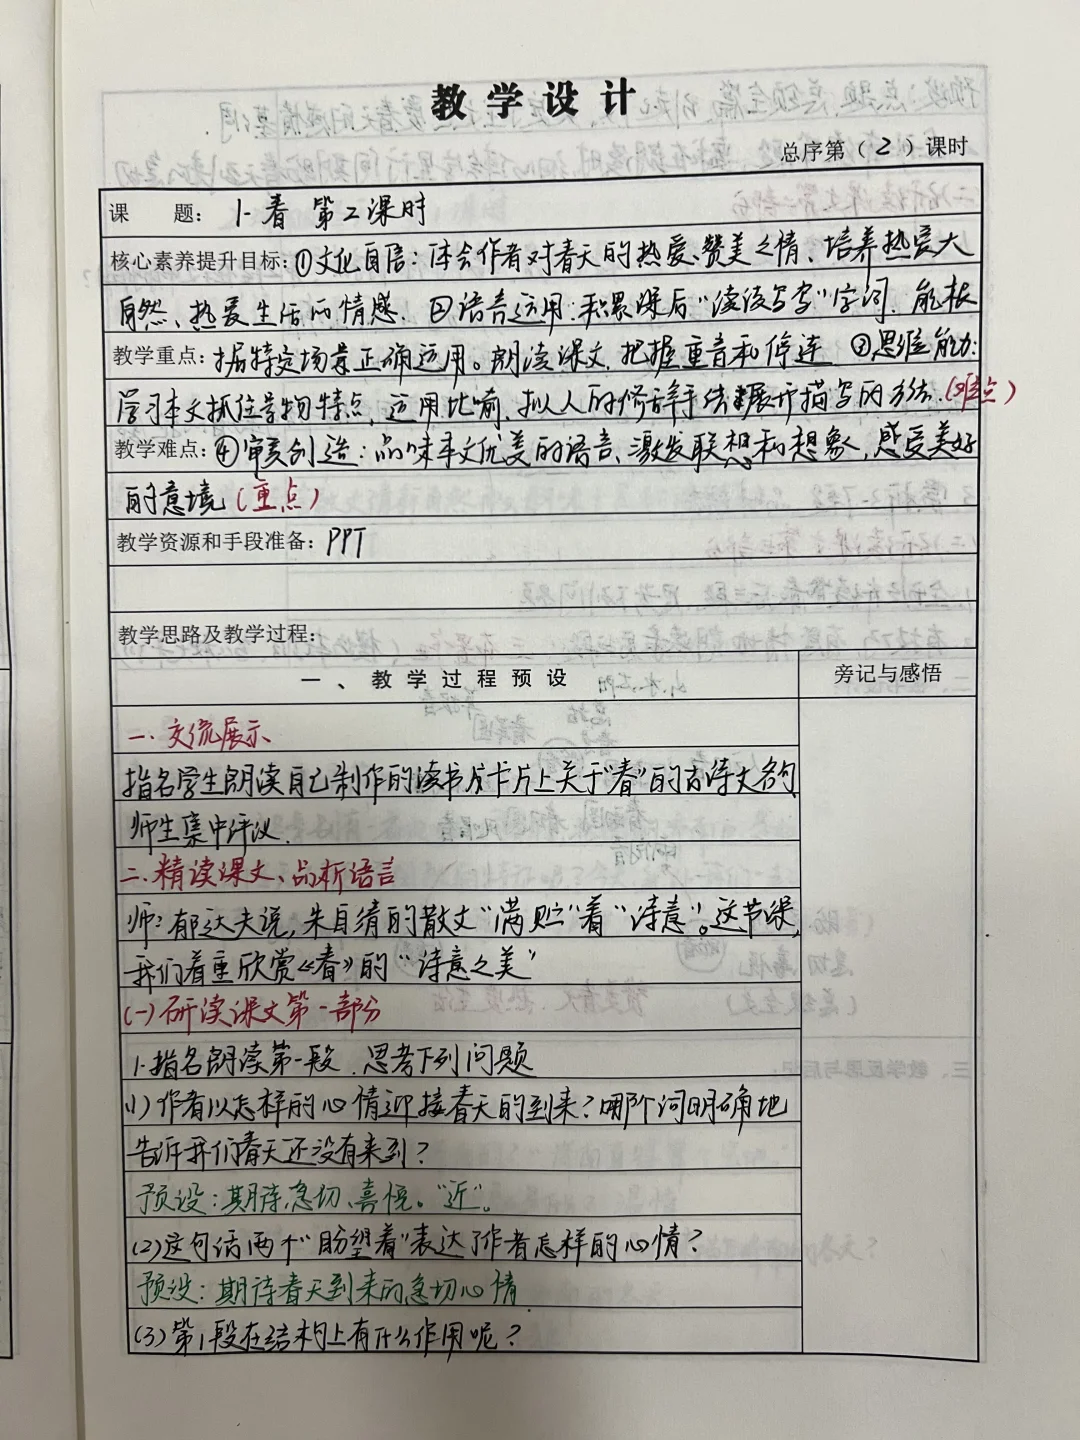 教学设计
总序第（2）课时
课 题：1.春 第2课时
核心素养提升目标：①文化自信：体会作者对春天的热爱、赞美之情、培养热爱大
自然、热爱生活的情感. ②语言运用：积累课后“读读写写”字词. 能根
教学重点：据特定场景正确运用。朗读课文.把握重音和停连 ③思维能力：
学习本文抓住景物特点，运用比喻、拟人的修辞手法展开描写的方法.(难点)
教学难点：④审美创造：品味本文优美的语言、激发联想和想象，感受美好
的意境(重点)
教学资源和手段准备：PPT
教学思路及教学过程：
一、教学过程预设 旁记与感悟
一. 交流展示
指名学生朗读自己制作的读书卡片上关于“春”的古诗文名句
师生集中评议.
二.精读课文、品析语言
师：郁达夫说，朱自清的散文“满贮”着“诗意”。这节课，
我们着重欣赏《春》的“诗意之美”
(一)研读课文第一部分
1.指名朗读第一段.思考下列问题
(1)作者以怎样的心情迎接春天的到来？哪个词明确地
告诉我们春天还没有来到？
预设：期待、急切、喜悦。“近”。
(2)这句话两个“盼望着”表达了作者怎样的心情？
预设：期待春天到来的急切心情.
(3)第1段在结构上有什么作用呢？